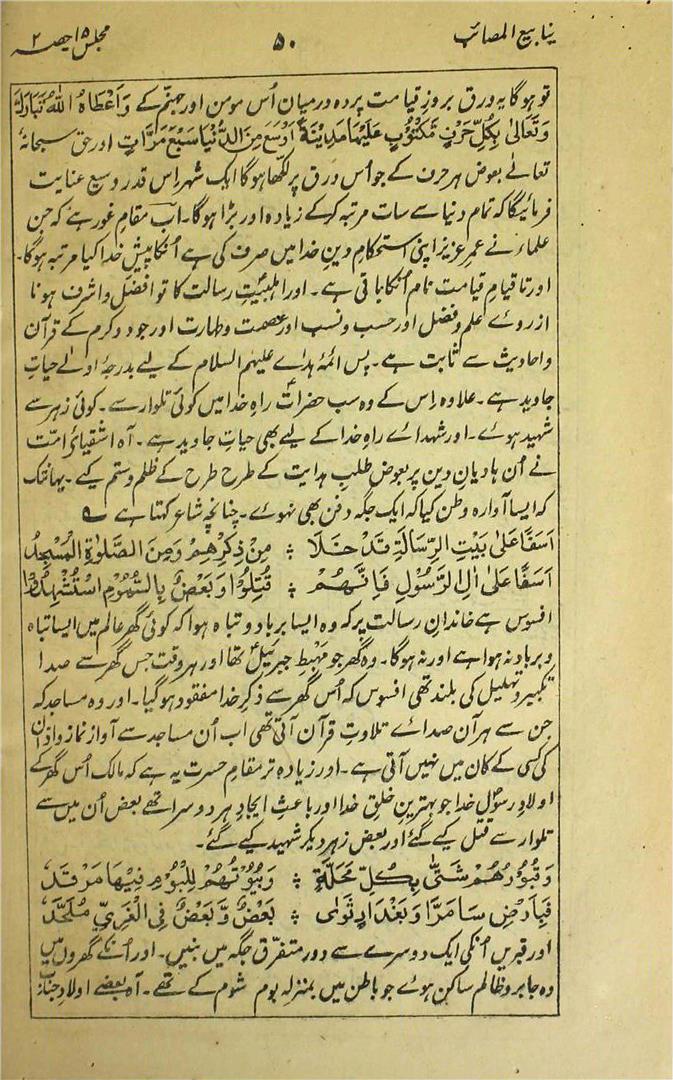 ینابیع المصائب
۵۰
مجلس ۱۵ حصہ ۲
تو ہوگا یہ ورق بروزِ قیامت پردہ درمیان اُس مومن اور جہنّم کے وَاَعْطَاہُ اللہُ تَبَارَکَ
وَتَعَالیٰ بِکُلِّ حَرْفٍ مَکْتُوْبٍ عَلَیْہَا مَدِیْنَۃً اَوْسَعَ مِنَ الدُّنْیَا سَبْعَ مَرَّاتٍ اور حق سبحانہٗ
تعالےٰ بعوض ہر حرف کے جو اُس ورق پر لکھا ہوگا ایک شہر اِس قدر وسیع عنایت
فرمائیگا کہ تمام دنیا سے سات مرتبہ کرکے زیادہ اور بڑا ہوگا۔ اب مقامِ غور ہے کہ جن
علماء نے عمرِ عزیز اپنی استحکامِ دینِ خدا میں صرف کی ہے اُنکا پیشِ خدا کیا مرتبہ ہوگا۔
اور تا قیامِ قیامت نام اُنکا باقی ہے۔ اور اہلبیتِ رسالت کا تو افضل و اشرف ہونا
از روے علم و فضل اور حسب و نسب اور عصمت و طہارت اور جود و کرم کے قرآن
و احادیث سے ثابت ہے۔ پس ائمۂ ہداے علیہم السلام کے لیے بدرجۂ اولےٰ حیاتِ
جاوید ہے۔ علاوہ اِس کے وہ سب حضراتؑ راہِ خدا میں کوئی تلوار سے۔ کوئی زہر سے
شہید ہوے۔ اور شہداے راہِ خدا کے لیے بھی حیاتِ جاوید ہے۔ آہ اشقیائے امّت
نے اُن ہادیانِ دین پر بعوض طلبِ ہدایت کے طرح طرح کے ظلم و ستم کیے۔ یہانتک
کہ ایسا آوارہ وطن کیا کہ ایک جگہ دفن بھی نہوے۔ چنانچہ شاعر کہتا ہے
اَسَفًا عَلیٰ بَیْتِ الرِّسَالَۃِ قَدْ خَلَا ؞ مِنْ ذِکْرِہِمْ وَمِنَ الصَّلوٰۃِ الْمَسْجِدُ
اَسَفًا عَلیٰ اٰلِ الرَّسُوْلِ فَاِنَّہُمْ ؞ قُتِلُوْا وَبَعْضٌ بِالسُّمُوْمِ اسْتُشْہِدُوْا
افسوس ہے خاندانِ رسالت پر کہ وہ ایسا برباد و تباہ ہوا کہ کوئی گھر عالم میں ایسا تباہ
و برباد نہ ہوا ہے اور نہ ہوگا۔ وہ گھر جو مہبطِ جبرئیلؑ تھا اور ہر وقت جس گھر سے صدا
تکبیر و تہلیل کی بلند تھی افسوس کہ اُس گھر سے ذکرِ خدا مفقود ہوگیا۔ اور وہ مساجد کہ
جن سے ہر آن صداے تلاوتِ قرآن آتی تھی اب اُن مساجد سے آوازِ نماز و اذان
کی کسی کے کان میں نہیں آتی ہے۔ اور زیادہ تر مقامِ حسرت یہ ہے کہ مالک اُس گھر کے
اولادِ رسولِ خدا جو بہترین خلقِ خدا اور باعثِ ایجادِ ہر دو سرا تھے بعض اُن میں سے
تلوار سے قتل کیے گئے اور بعض زہر دیکر شہید کیے گئے۔
وَقُبُوْرُہُمْ شَتّٰی بِکُلِّ مَحَلَّۃٍ ؞ وَبُیُوْتُہُمْ لِلْبُوْمِ فِیْہَا مَرْقَدٌ
فَبِاَرْضِ سَامَرَّا وَبَغْدَادٍ ثَوٰی ؞ بَعْضٌ وَّبَعْضٌ فِی الْغَرِیِّ مُلَحَّدٌ
اور قبریں اُنکی ایک دوسرے سے دور متفرّق جگہ میں بنیں۔ اور اُنکے گھروں میں
وہ جابر و ظالم ساکن ہوے جو باطن میں بمنزلہ بوم شوم کے تھے۔ آہ بعضے اولادِ جنابِ